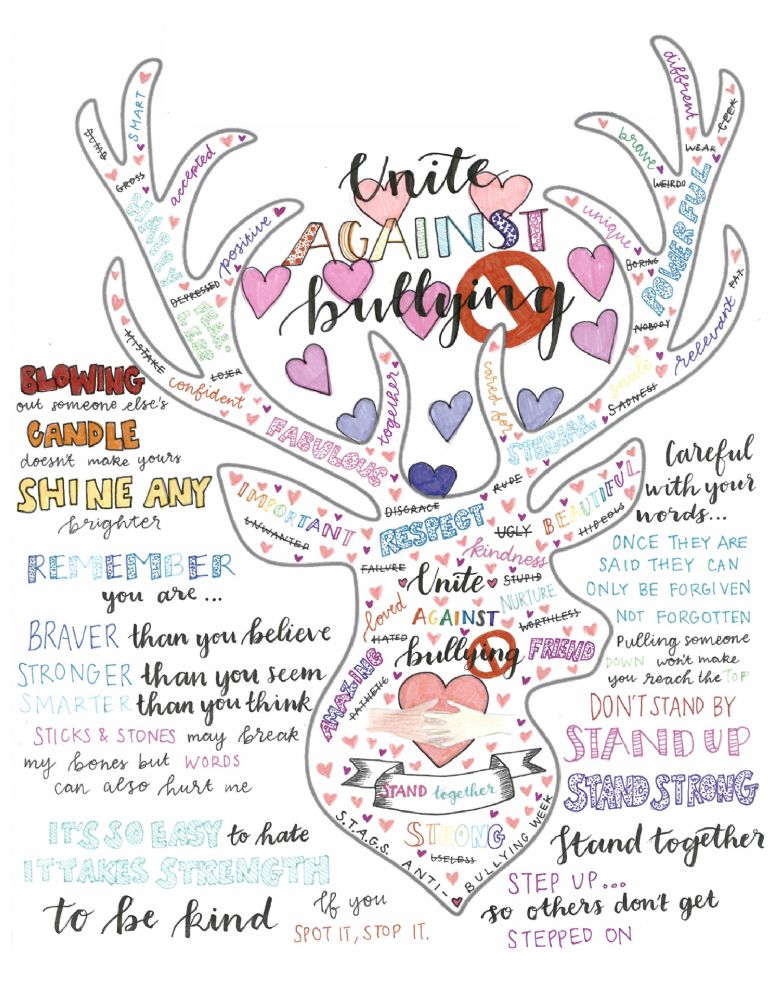 Unite
AGAINST
bullying
DUMB
SMART
GROSS
accepted
positive
DEPRESSED
MISTAKE
LOSER
confident
FABULOUS
together
different
GEEK
brave
WEAK
WEIRDO
unique
POWERFUL
BORING
NOBODY
FAT
relevant
smile
SADNESS
cared for
SPECIAL
BLOWING
out someone else's
CANDLE
doesn't make yours
SHINE ANY
brighter
REMEMBER
you are ...
BRAVER than you believe
STRONGER than you seem
SMARTER than you think
STICKS & STONES may break
my bones but WORDS
can also hurt me
IT'S SO EASY to hate
IT TAKES STRENGTH
to be kind
If you
SPOT IT, STOP IT.
IMPORTANT
UNWANTED
DISGRACE
RUDE
RESPECT
UGLY
BEAUTIFUL
HIDEOUS
kindness
FAILURE
Unite
STUPID
NURTURE
loved
AGAINST
WORTHLESS
HATED
bullying
FRIEND
AMAZING
PATHETIC
STAND together
STRONG
USELESS
S.T.A.G.S. ANTI-BULLYING WEEK
Careful
with your
words...
ONCE THEY ARE
SAID THEY CAN
ONLY BE FORGIVEN
NOT FORGOTTEN
Pulling someone
DOWN won't make
you reach the TOP
DON'T STAND BY
STAND UP
STAND STRONG
Stand together
STEP UP...
so others don't get
STEPPED ON